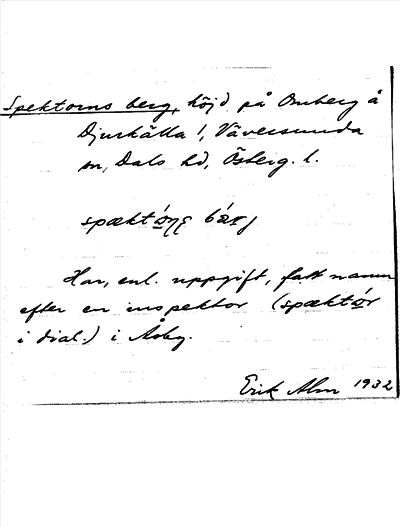 Spektorns berg, höjd på Omberg å
Djurkälla 1, Väversunda
sn, Dals hd, Österg. l.
spækt
Har, enl. uppgift, fått namn
efter en inspektor (spæktór
i dial.) i Åsby.
Erik Alm 1932